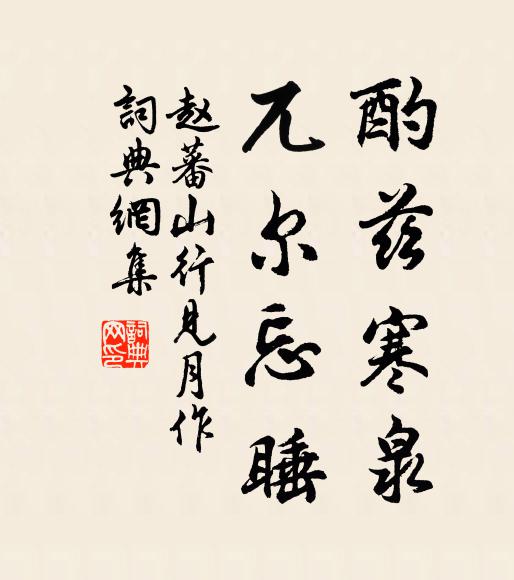 酌兹寒泉
兀尔忘睡
赵蕃山行见月作
詞典網集
詞典网印